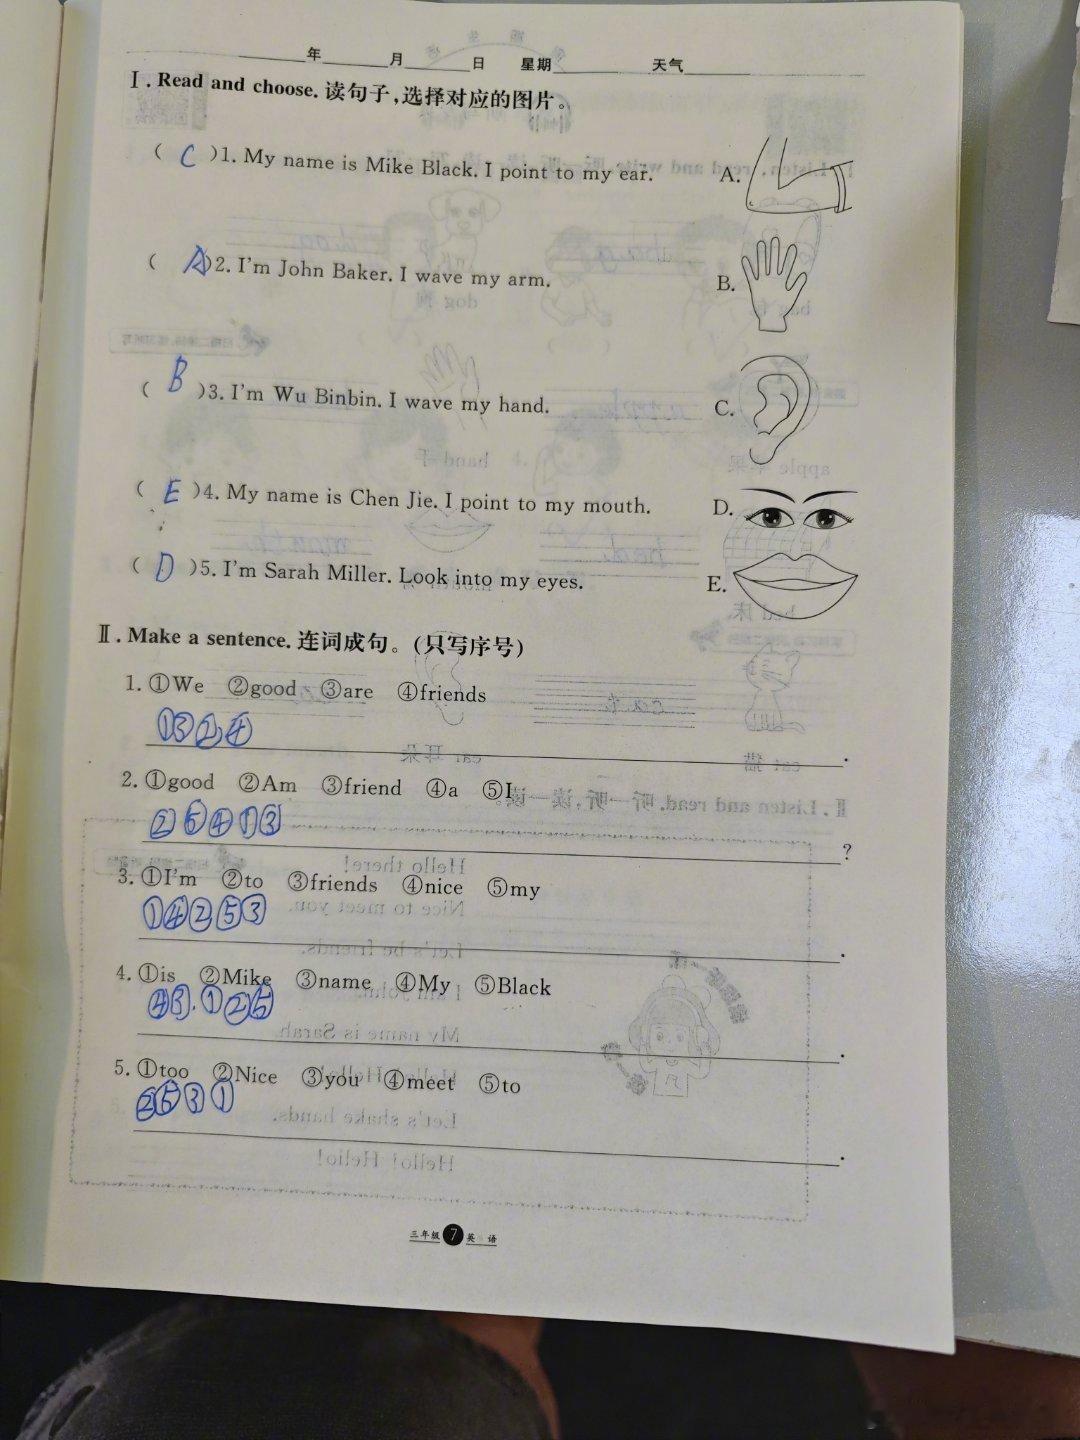 年 月 日 星期 天气
Ⅰ. Read and choose. 读句子,选择对应的图片。
( C )1. My name is Mike Black. I point to my ear. A.
( A )2. I'm John Baker. I wave my arm. B.
( B )3. I'm Wu Binbin. I wave my hand. C.
( E )4. My name is Chen Jie. I point to my mouth. D.
( D )5. I'm Sarah Miller. Look into my eyes. E.
Ⅱ. Make a sentence. 连词成句。(只写序号)
1. ①We ②good ③are ④friends
①③②④ .
2. ①good ②Am ③friend ④a ⑤I
②⑤④①③ ?
3. ①I'm ②to ③friends ④nice ⑤my
①④②⑤③ .
4. ①is ②Mike ③name ④My ⑤Black
④③①②⑤ .
5. ①too ②Nice ③you ④meet ⑤to
②⑤③① .
三年级 7 英语